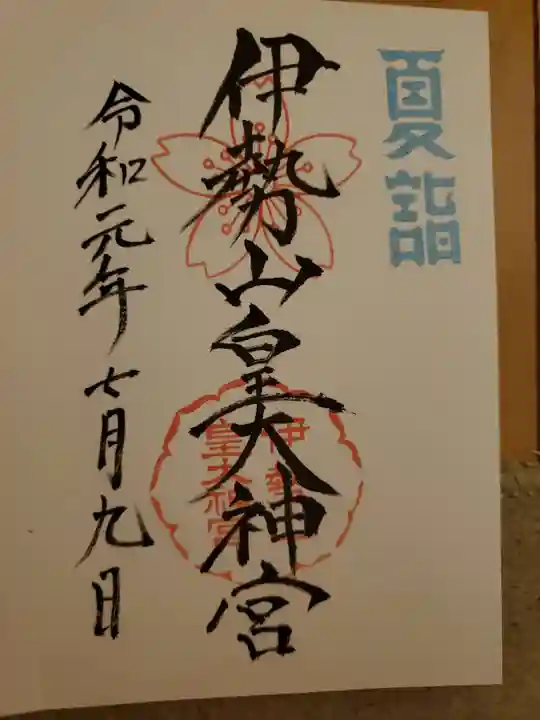 夏詣
伊勢山皇大神宮
令和元年七月九日
伊勢山
皇大神宮